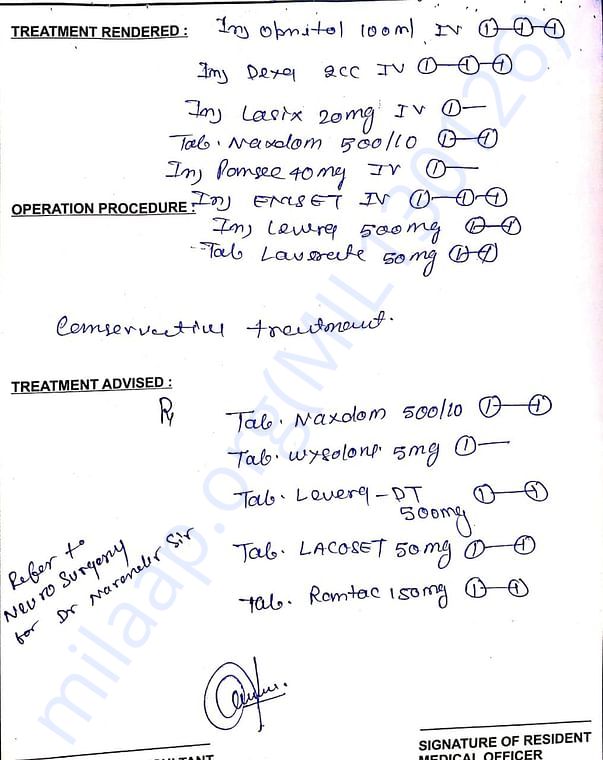 TREATMENT RENDERED : Inj Opnitol 100ml IV ①—①—①
Inj Dexa 2CC IV ①—①—①
Inj Lasix 20mg IV ①—
Tab. Naxdom 500/10 ①—①
Inj Pomsec 40mg IV ①—
OPERATION PROCEDURE : Inj EMSET IV ①—①—①
Inj Levera 500mg ①—①
Tab 50mg ①—①
Conservative treatment.
TREATMENT ADVISED :
Rx
Tab. Naxdom 500/10 ①—①
Tab. Wysolone 5mg ①—
Tab. Levera-DT ①—①
500mg
Tab. LACOSET 50mg ①—①
Tab. Rantac 150mg ①—①
Refer to
Neuro Surgery
for Dr Narender Sir
SIGNATURE OF RESIDENT
MEDICAL OFFICER
milaap.org(MIL130126)